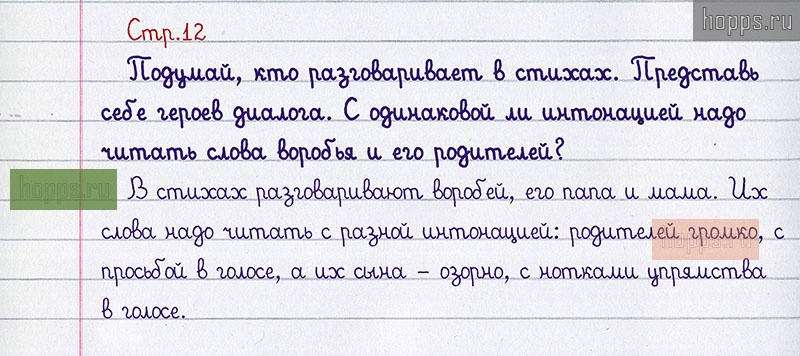 hopps.ru
Стр.12
Подумай, кто разговаривает в стихах. Представь
себе героев диалога. С одинаковой ли интонацией надо
читать слова воробья и его родителей?
hopps.ru
В стихах разговаривают воробей, его папа и мама. Их
слова надо читать с разной интонацией: родителей громко, с
hopps.ru
просьбой в голосе, а их сына – озорно, с нотками упрямства
в голосе.